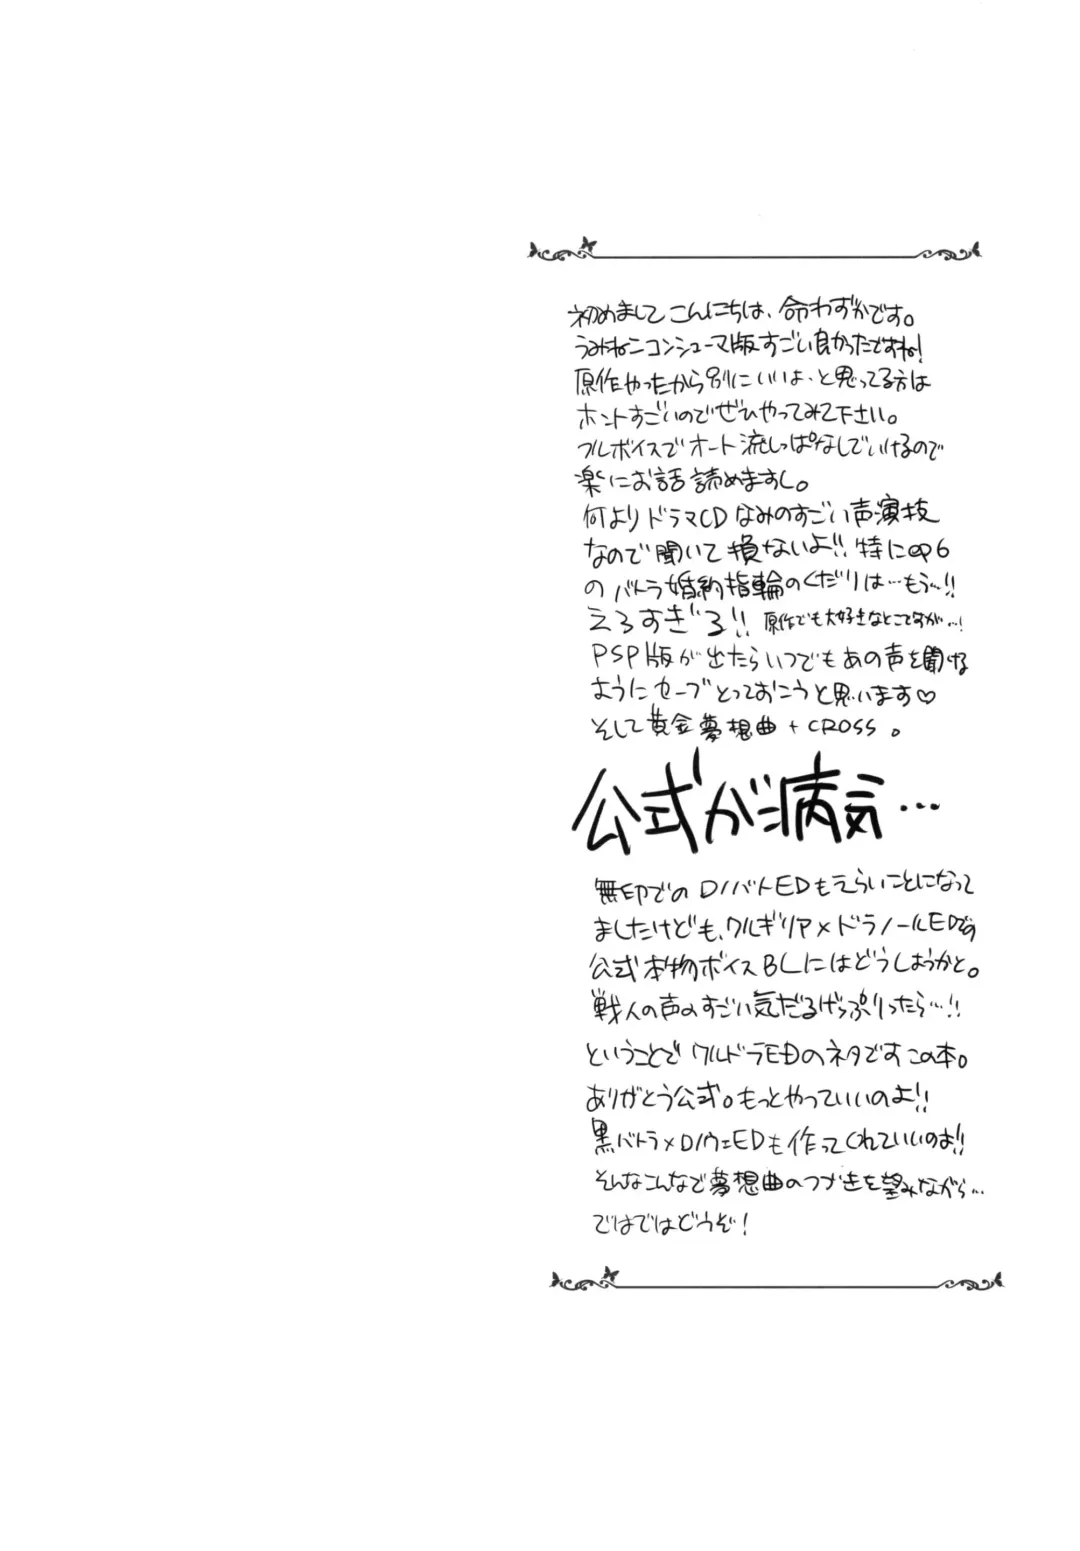 初めまして こんにちは、命わずかです。
うみねこコンシューマ版すごい良かったですね!
原作やったから別にいいよ、と思ってる方は
ホントすごいのでぜひやってみて下さい。
フルボイスでオート流しっぱなしでいけるので
楽にお話読めますし。
何よりドラマCDなみのすごい声演技
なので聞いて損ないよ!! 特にep6
の バトラ婚約指輪のくだりは…もう…!!
えろすぎる!! 原作でも大好きなとこですが…!
PSP版が出たらいつでもあの声を聞ける
ようにセーブとっておこうと思います♡
そして黄金夢想曲+CROSS。
公式が病気…
無印での D/バトEDもえらいことになって
ましたけども、ワルギリア×ドラノールEDでの
公式本物ボイスBLにはどうしようかと。
戦人の声のすごい気だるげっぷりったら…!!
ということで ワルドラEDのネタです この本。
ありがとう公式。もっとやっていいのよ!!
黒バトラ×D/ウェEDも作ってくれていいのよ!!
そんなこんなで夢想曲のつづきを望みながら…
ではではどうぞ!